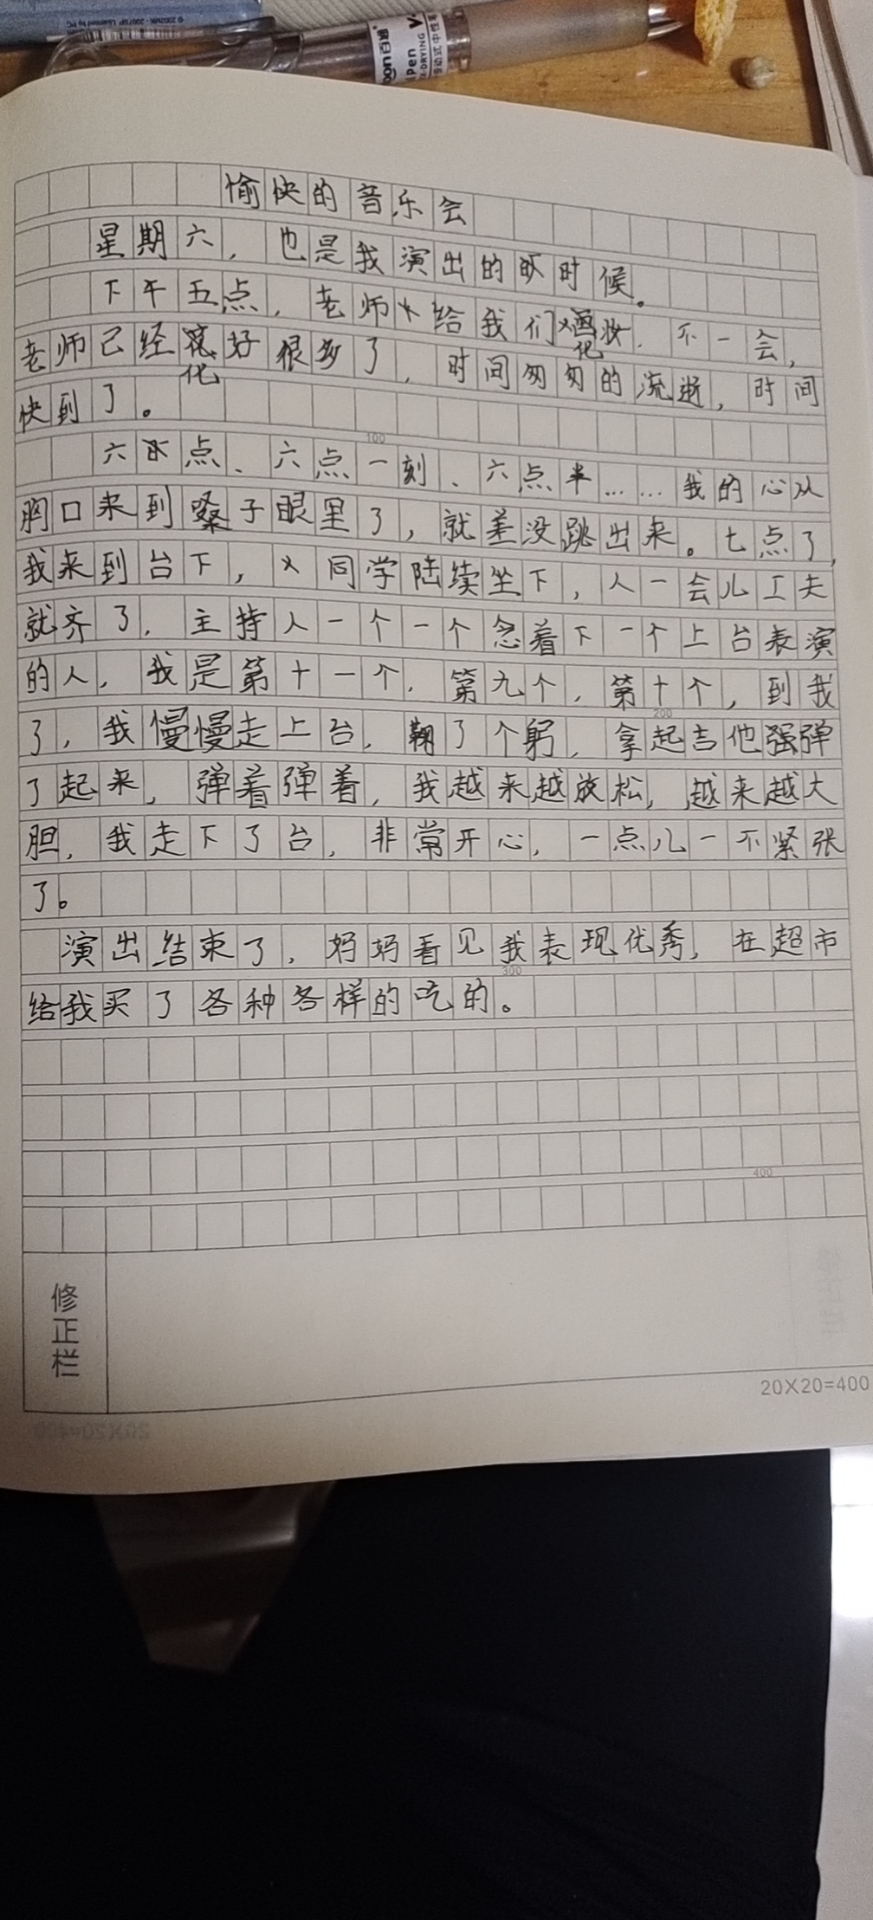 愉快的音乐会
星期六，也是我演出的时候。
下午五点，老师给我们化妆，不一会，
老师已经化好很多了，时间匆匆的流逝，时间
快到了。
100
六点、六点一刻、六点半……我的心从
胸口来到嗓子眼里了，就差没跳出来。七点了，
我来到台下，同学陆续坐下，人一会儿工夫
就齐了，主持人一个一个念着下一个上台表演
的人，我是第十一个，第九个，第十个，到我
200
了，我慢慢走上台，鞠了个躬，拿起吉他强弹
了起来，弹着弹着，我越来越放松，越来越大
胆，我走下了台，非常开心，一点儿一不紧张
了。
演出结束了，妈妈看见我表现优秀，在超市
300
给我买了各种各样的吃的。
400
修正栏
20×20=400